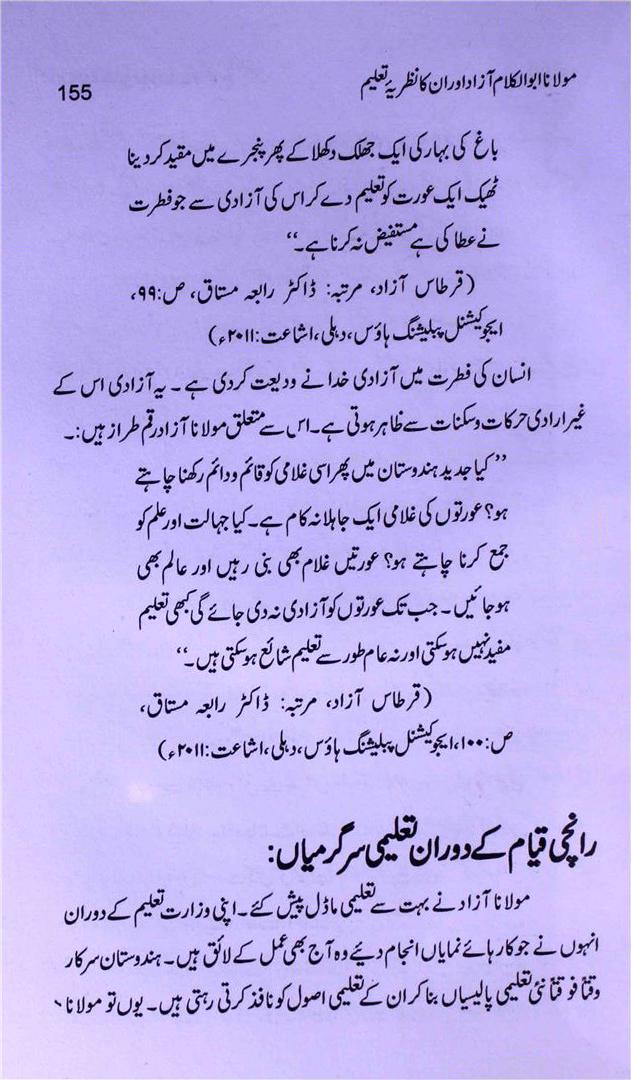 مولانا ابوالکلام آزاد اور ان کا نظریۂ تعلیم
155
باغ کی بہار کی ایک جھلک دکھلا کے پھر پنجرے میں مقید کر دینا
ٹھیک ایک عورت کو تعلیم دے کر اس کی آزادی سے جو فطرت
نے عطا کی ہے مستفیض نہ کرنا ہے۔‘‘
(قرطاس آزاد، مرتبہ: ڈاکٹر رابعہ مستاق، ص:۹۹،
ایجوکیشنل پبلیشنگ ہاؤس، دہلی، اشاعت:۲۰۱۱ء)
انسان کی فطرت میں آزادی خدا نے ودیعت کر دی ہے ۔ یہ آزادی اس کے
غیر ارادی حرکات و سکنات سے ظاہر ہوتی ہے۔ اس سے متعلق مولانا آزاد رقم طراز ہیں:۔
’’کیا جدید ہندوستان میں پھر اسی غلامی کو قائم و دائم رکھنا چاہتے
ہو؟ عورتوں کی غلامی ایک جاہلانہ کام ہے۔ کیا جہالت اور علم کو
جمع کرنا چاہتے ہو؟ عورتیں غلام بھی بنی رہیں اور عالم بھی
ہو جائیں ۔ جب تک عورتوں کو آزادی نہ دی جائے گی کبھی تعلیم
مفید نہیں ہو سکتی اور نہ عام طور سے تعلیم شائع ہو سکتی ہیں۔‘‘
(قرطاس آزاد، مرتبہ: ڈاکٹر رابعہ مستاق،
ص:۱۰۰، ایجوکیشنل پبلیشنگ ہاؤس، دہلی، اشاعت:۲۰۱۱ء)
رانچی قیام کے دوران تعلیمی سرگرمیاں:
مولانا آزاد نے بہت سے تعلیمی ماڈل پیش کئے۔ اپنی وزارت تعلیم کے دوران
انہوں نے جو کارہائے نمایاں انجام دیئے وہ آج بھی عمل کے لائق ہیں۔ ہندوستان سرکار
وقتاً فوقتاً نئی تعلیمی پالیسیاں بنا کر ان کے تعلیمی اصول کو نافذ کرتی رہتی ہیں۔ یوں تو مولانا